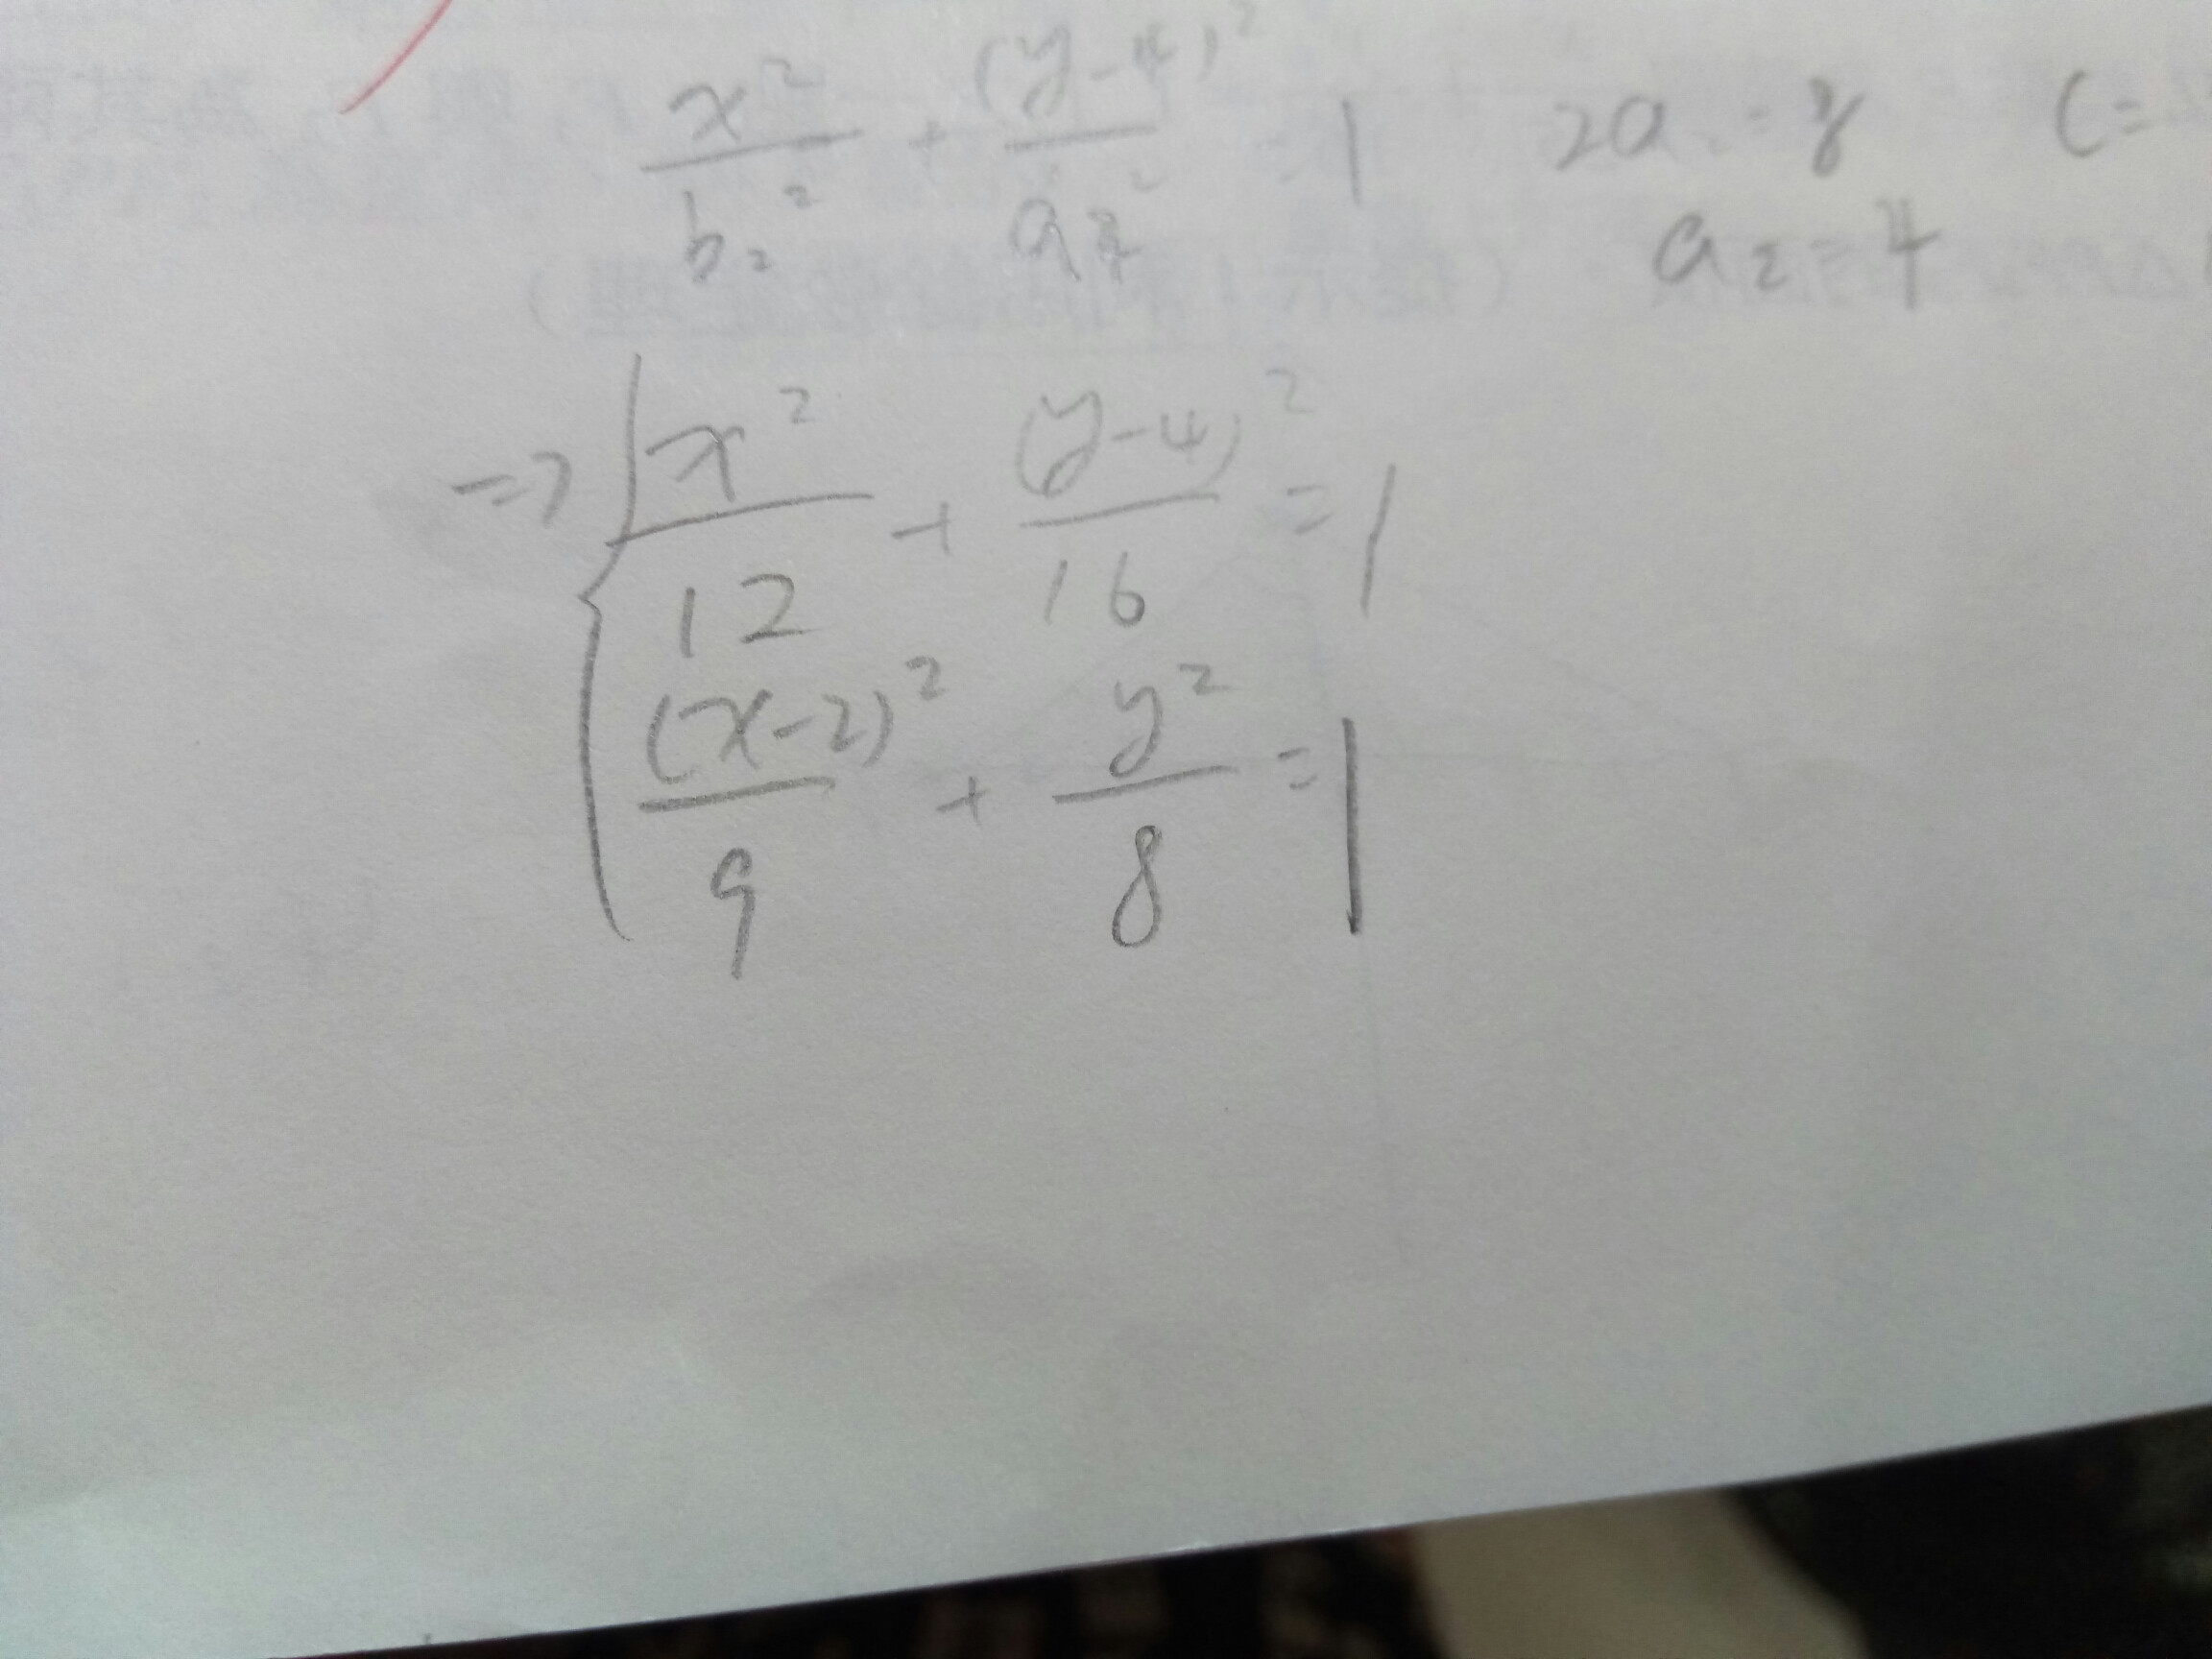 x² / b₂² + (y-4)² / a₂² = 1    2a = 8    C=
a₂ = 4
=> x² / 12 + (y-4)² / 16 = 1
(x-2)² / 9 + y² / 8 = 1